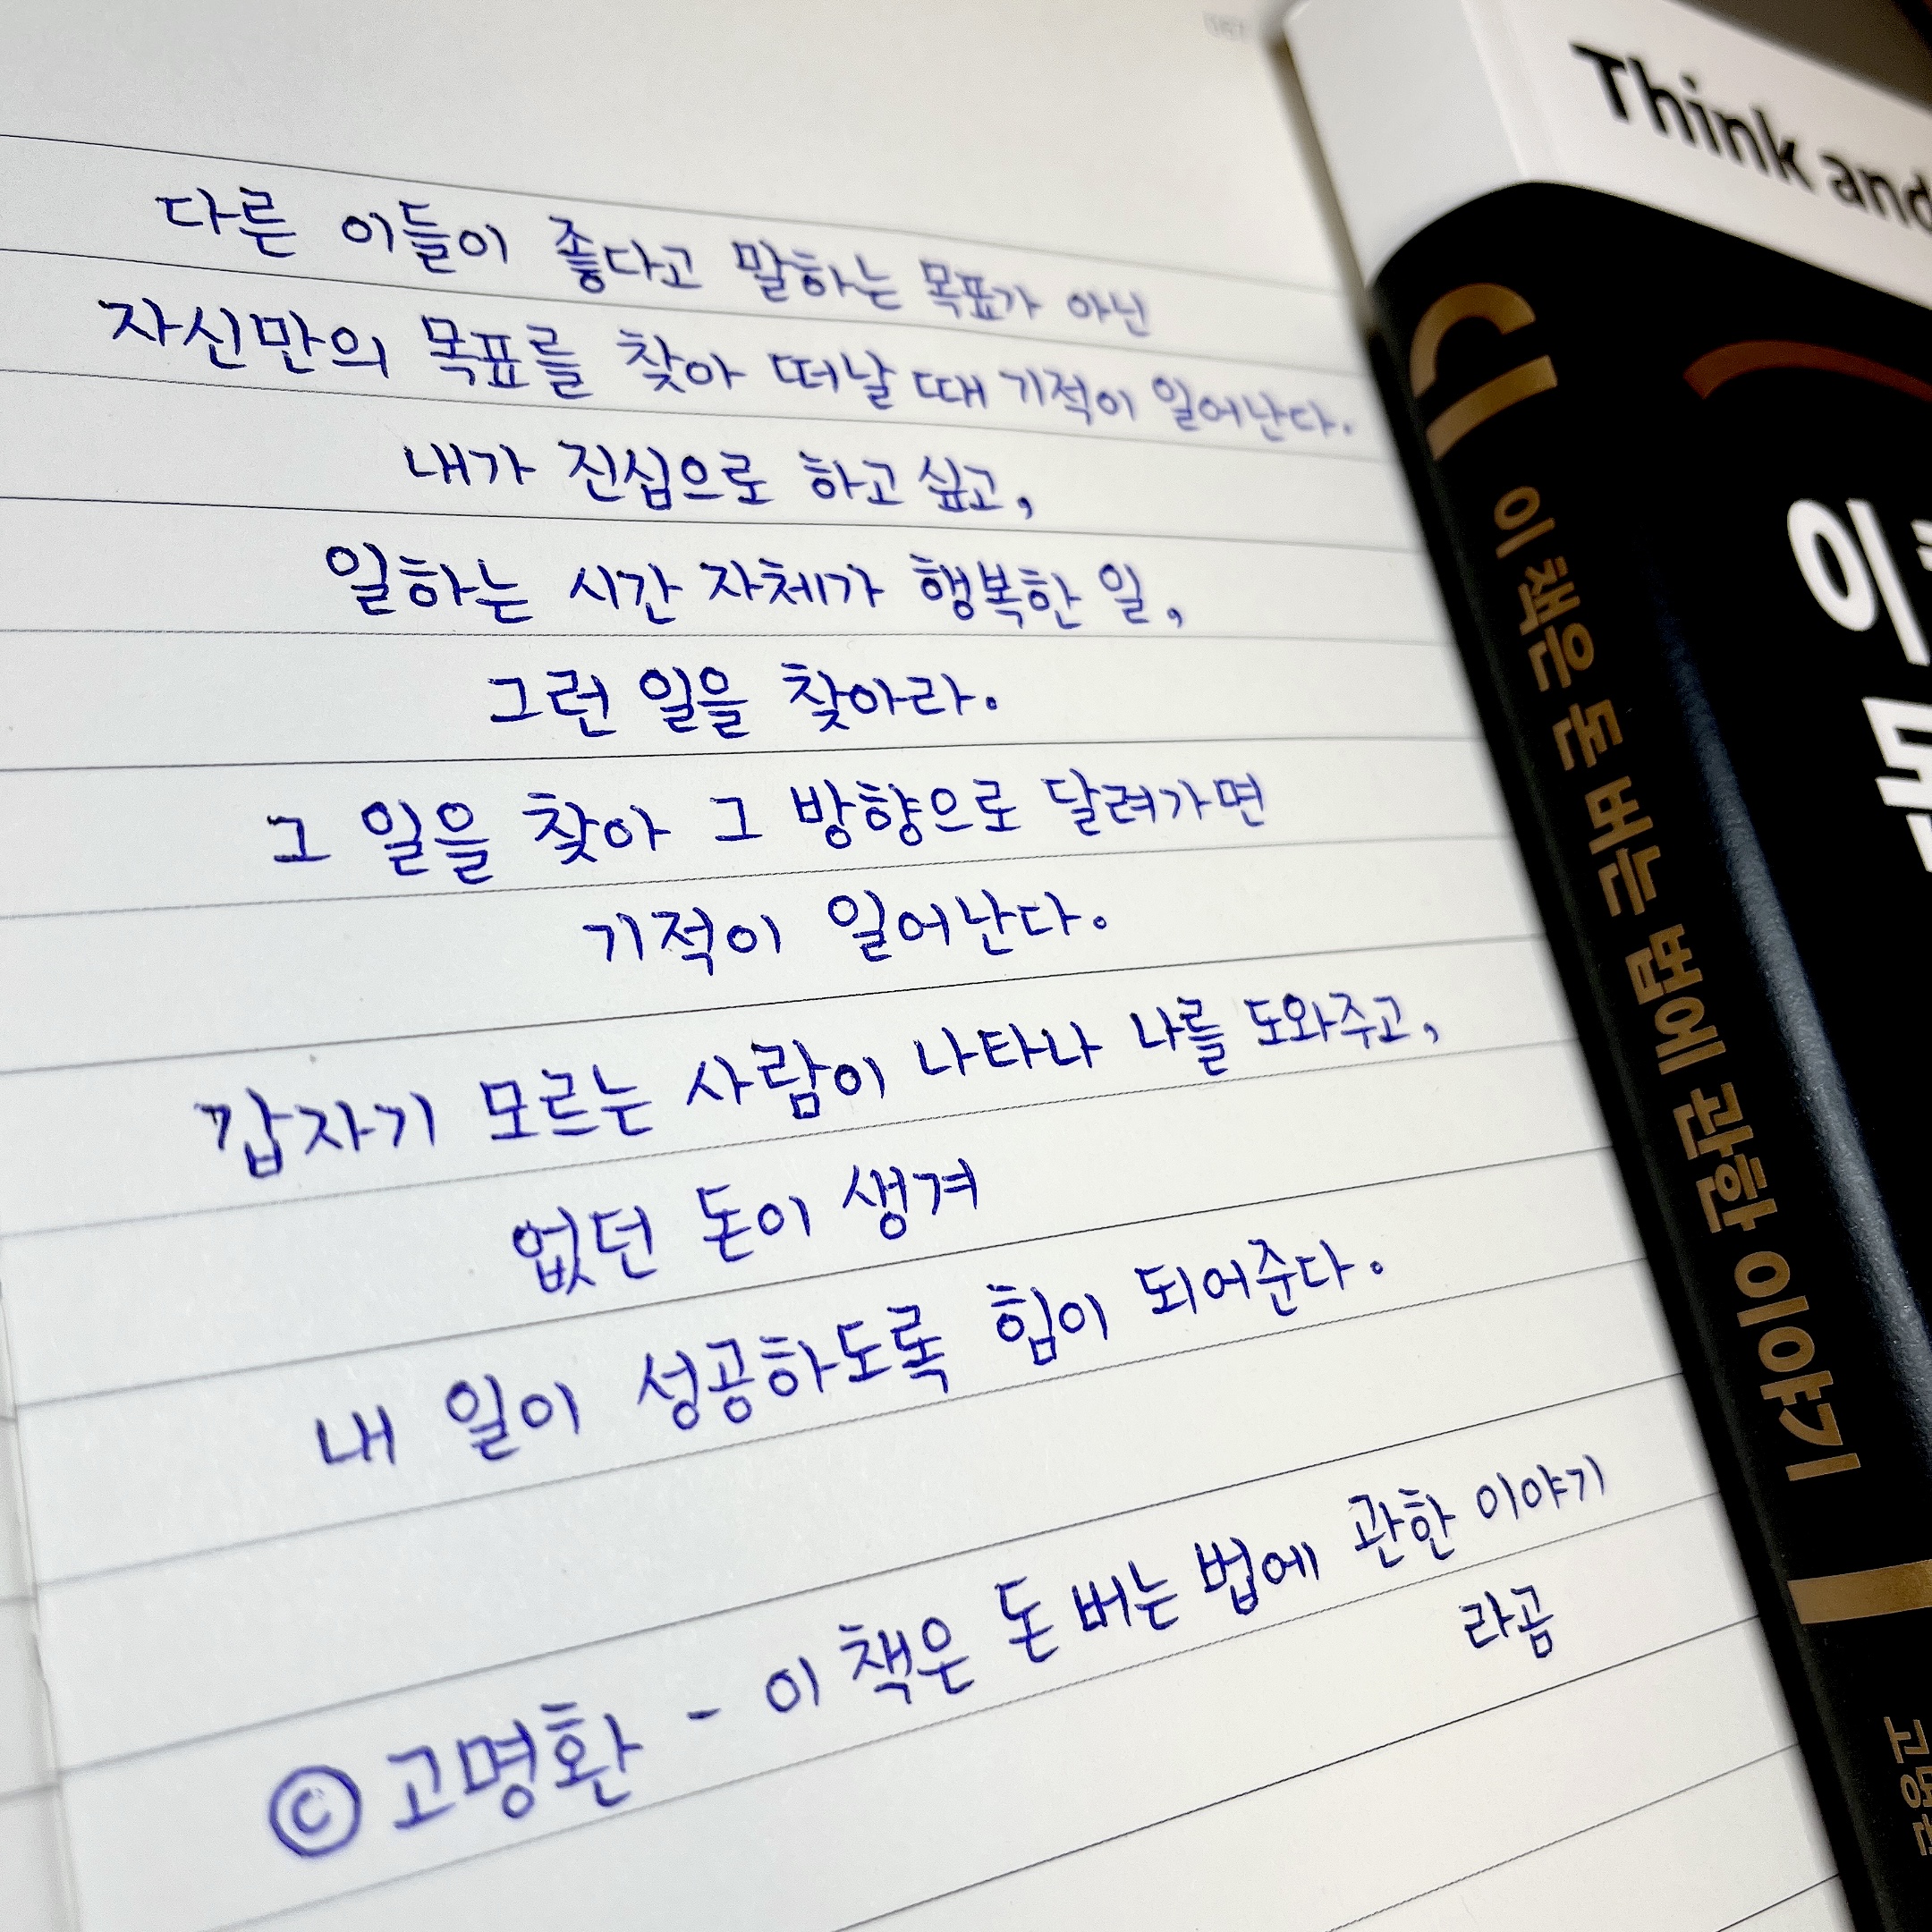 다른 이들이 좋다고 말하는 목표가 아닌
자신만의 목표를 찾아 떠날 때 기적이 일어난다.
내가 진심으로 하고 싶고,
일하는 시간 자체가 행복한 일,
그런 일을 찾아라.
그 일을 찾아 그 방향으로 달려가면
기적이 일어난다.
갑자기 모르는 사람이 나타나 나를 도와주고,
없던 돈이 생겨
내 일이 성공하도록 힘이 되어준다.
ⓒ 고명환 - 이 책은 돈 버는 법에 관한 이야기
라곰
Think and
이 책은 돈 버는 법에 관한 이야기
고명환
이